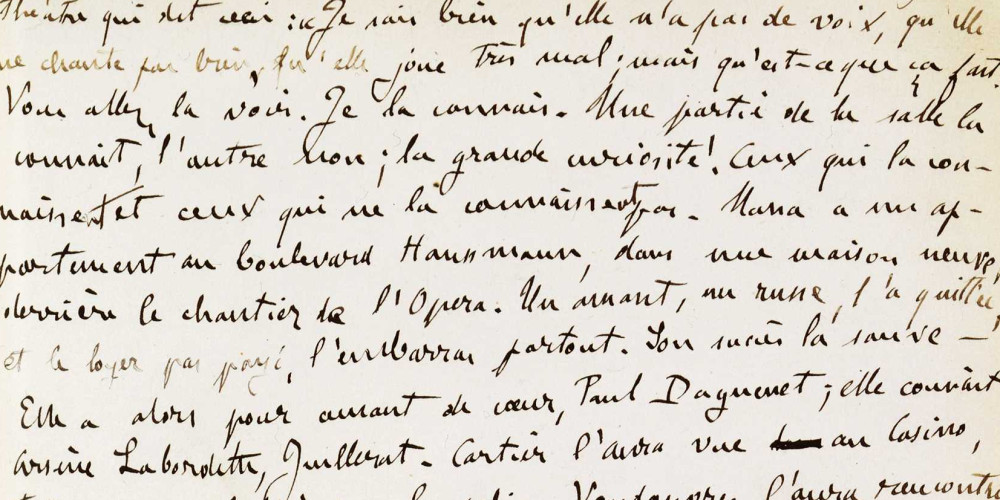 théâtre qui dit ceci : « Je sais bien qu'elle n'a pas de voix, qu'elle
ne chante pas bien, qu'elle joue très mal ; mais qu'est-ce que ça fait.
Vous allez la voir. Je la connais. Une partie de la salle la
connait, l'autre non ; la grande curiosité ! Ceux qui la con-
naissent et ceux qui ne la connaissent pas. Nana a un ap-
partement au boulevard Haussmann, dans une maison neuve,
derrière le chantier de l'Opera. Un amant, un russe, l'a quittée,
et le loyer pas payé, l'embarras partout. Son succès la sauve —
Elle a alors pour amant de cœur, Paul Daguenet ; elle connait
Arsène Labordette, Juillerat. Cartier l'aura vue au Casino,
l'aura rencontré